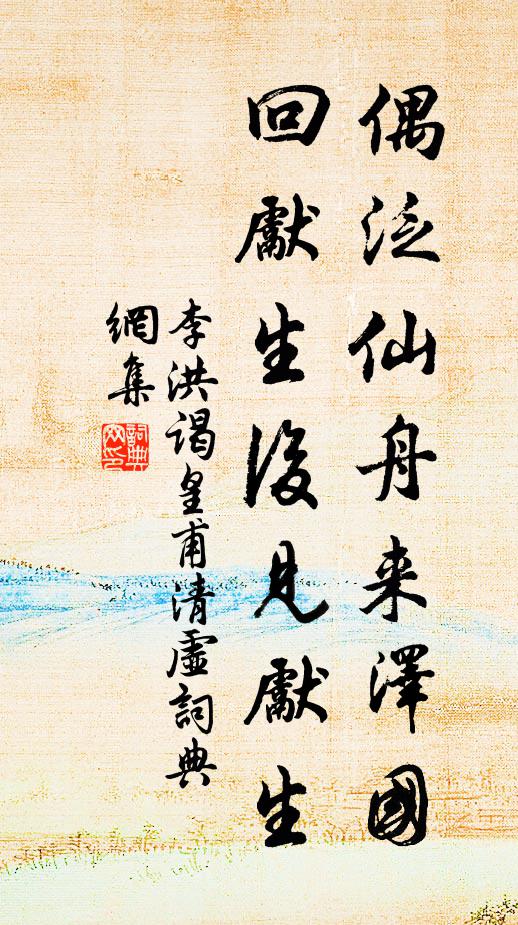 偶泛仙舟来澤國
回獻生後見獻生
李洪謁皇甫清虛詞典
網集
詞典